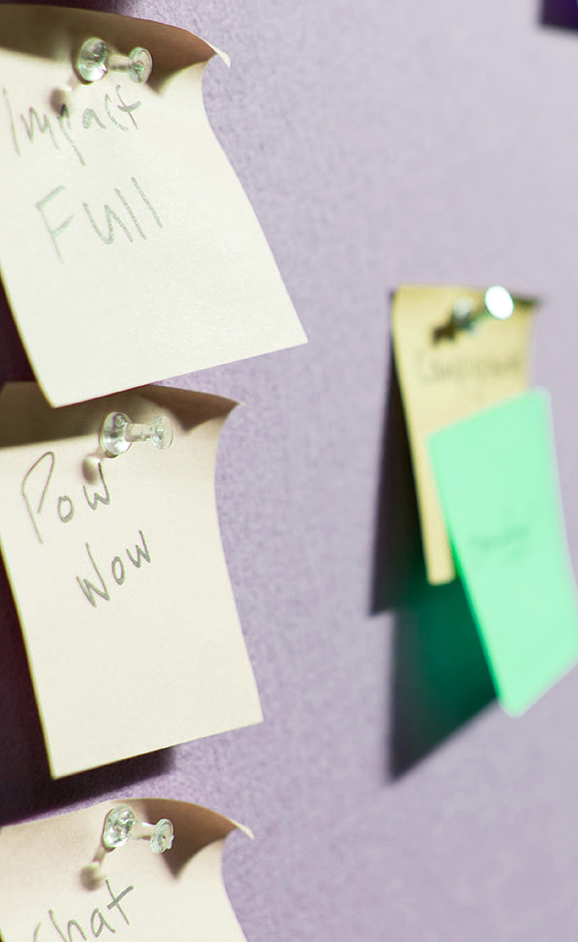 Impact
Full
Pow
Wow
Chat